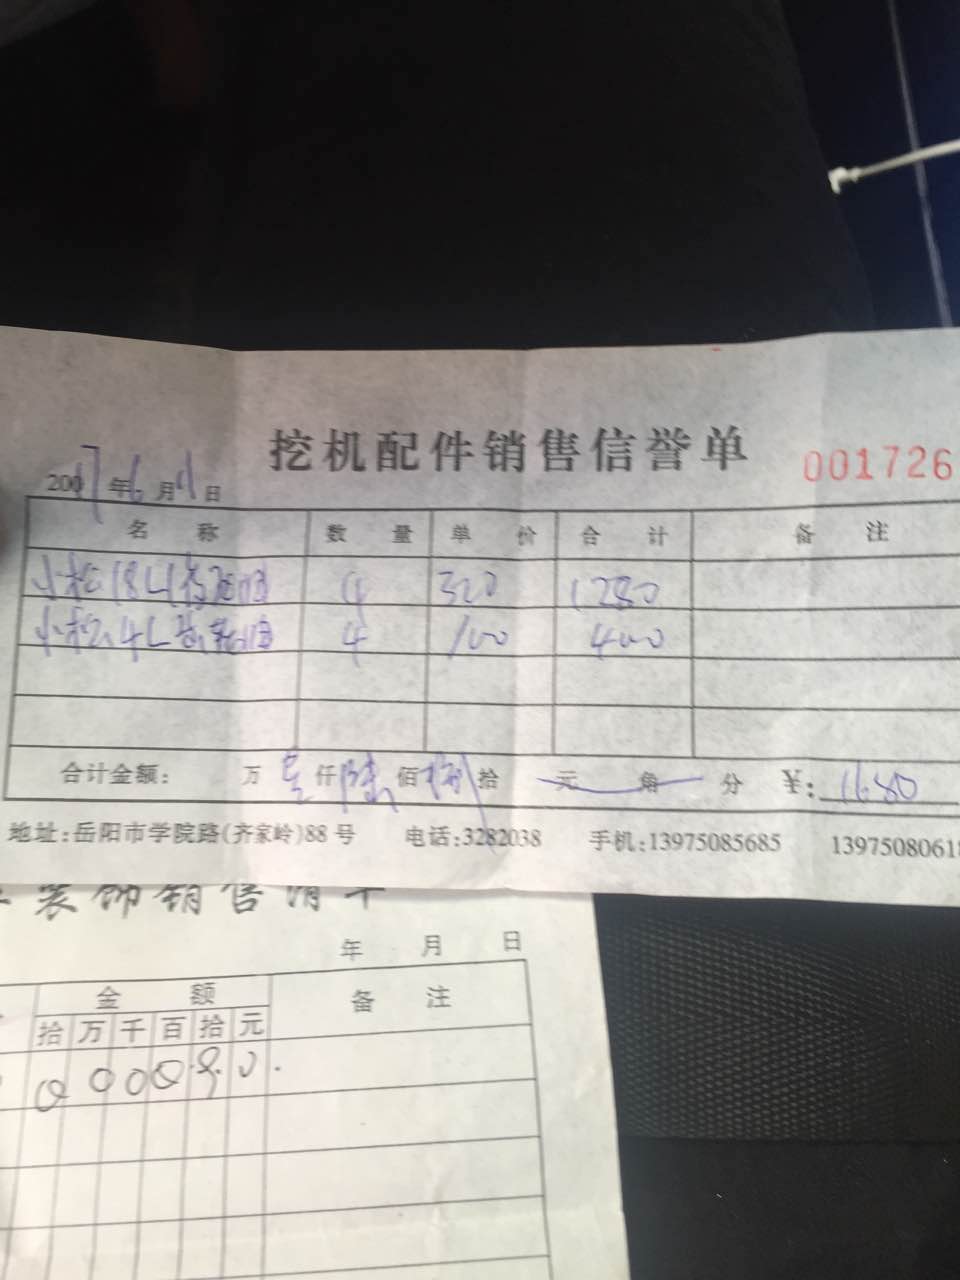 挖机配件销售信誉单
001726
2017年6月 日
名 称 数 量 单 价 合 计 备 注
小松18L 4 320 1280
小松4L 4 100 400
合计金额: 万 壹仟陆佰捌拾 元 角 分 ¥:1680
地址:岳阳市学院路(齐家岭)88号 电话:3282038 手机:13975085685 1397508061
装饰销售清单
年 月 日
金 额 备 注
拾 万 千 百 拾 元
0 0 0 0 9 0